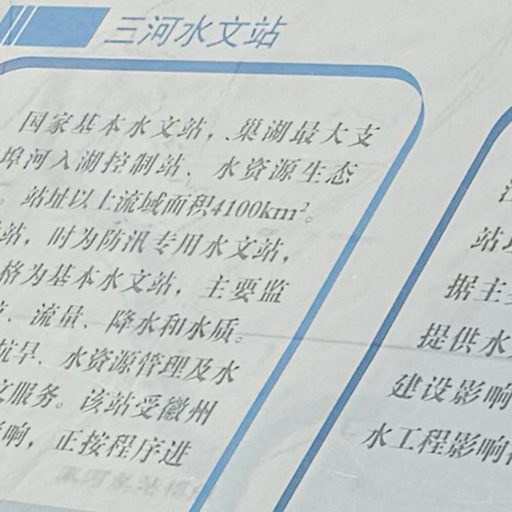 三河水文站
国家基本水文站，巢湖最大支
埠河入湖控制站、水资源生态
。站址以上流域面积4100km²。
站，时为防汛专用水文站，
格为基本水文站，主要监
、流量、降水和水质。
抗旱、水资源管理及水
文服务。该站受徽州
影响，正按程序进
站
据主
提供水
建设影响
水工程影响